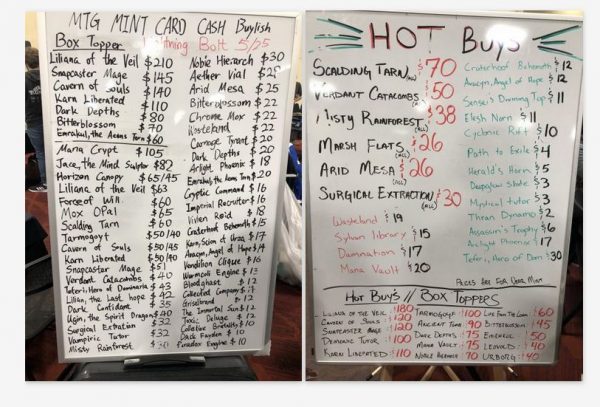 MTG MINT CARD CASH Buylish
Box Topper
Lightning Bolt 5/25
Liliana of the Veil $210
Snapcaster Mage $145
Cavern of Souls $140
Karn Liberated $110
Dark Depths $80
Bitterblossom $70
Emrakul, the Aeons Torn $60
Mana Crypt $105
Jace, the Mind Sculptor $82
Horizon Canopy $65/45
Liliana of the Veil $63
Force of Will $60
Mox Opal $65
Scalding Tarn $60
Tarmogoyf $50/40
Cavern of Souls $50/45
Karn Liberated $50/40
Snapcaster Mage $51
Verdant Catacombs $40
Teferi, Hero of Dominaria $43
Lilian, the Last hope $42
Dark Confidant $35
Ugin, the Spirit Dragon $40
Surgical Extration $32
Vampiric Tutor $32
Misty Rainforest $30
Noble Hierarch $30
Aether Vial
Arid Mesa $25
Bitterblossom $22
Chrome Mox $22
Wasteland $22
Carnage Tyrant $20
Dark Depths $20
Arclight Phoenix $18
Emrakul, the Aeons Torn $20
Cryptic Command $16
Imperial Recruiter $16
Vivien Reid $18
Craterhoof Behemoth $15
Karn, Scion of Urza $17
Avacyn, Angel of Hope $14
Vendilion Clique $16
Wurmcoil Engine $13
Bloodghast $12
Collected Company $12
Griselbrand $12
The Immortal Sun $12
Toxic Deluge $12
Collective Brutality $10
Dack Fayden $10
Paradox Engine $10
HOT BUYS
SCALDING TARN $70
VERDANT CATACOMBS (ALL) $50
MISTY RAINFOREST (ALL) $38
MARSH FLATS (ALL) $26
ARID MESA (ALL) $26
SURGICAL EXTRACTION (ALL) $30
Wasteland $19
Sylvan library $15
Damnation $17
Mana Vault $20
Craterhoof Behemoth $12
Avacyn, Angel of Hope $12
Sensei's Divining Top $11
Elesh Norn $11
Cyclonic Rift $10
Path to Exile $4
Herald's Horn $5
Mystical tutor $3
Thran Dynamo $2
Assassin's Trophy $6
Arclight Phoenix $17
Teferi, Hero of Dom $30
PRICES ARE FOR NEAR MINT
HOT BUY'S // BOX TOPPERS
LILIANA OF THE VEIL $180
CAVERN OF SOULS $120
SNAPCASTER MAGE $120
DEMONIC TUTOR $100
KARN LIBERATED $110
TARMOGOYF $100
ANCIENT TOMB $90
DARK DEPTHS $75
MANA VAULT $75
NOBLE HIERARCH $70
LIFE FROM THE LOAM $60
BITTERBLOSSOM $45
EMRAKUL $50
LEOVOLD $40
URBORG $40